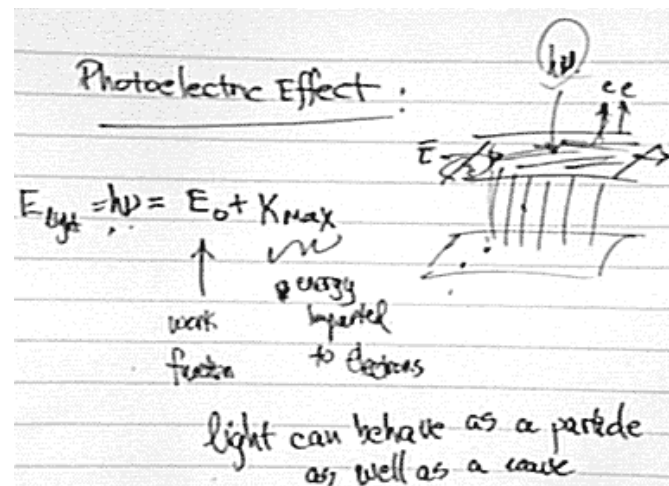 Photoelectric Effect :
hν
e e
E light = hν = E₀ + Kmax
work
function
energy
imparted
to electrons
light can behave as a particle
as well as a wave